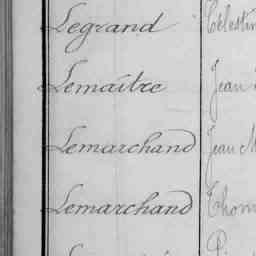 Legrand Célestin
Lemaître Jean
Lemarchand Jean M
Lemarchand Thom